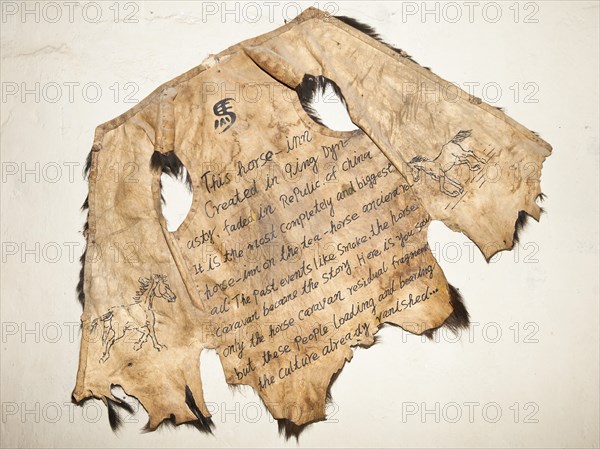 This horse-inn
Created in Qing Dyn-
asty. faded in Republic of China
It is the most completely and biggest
horse-inn on the tea-horse ancient ro-
ad. The past events like smoke. the horse
caravan become the story. Here is you see
only the horse caravan residual fragment
but these People loading and bearing
the culture already vanished...